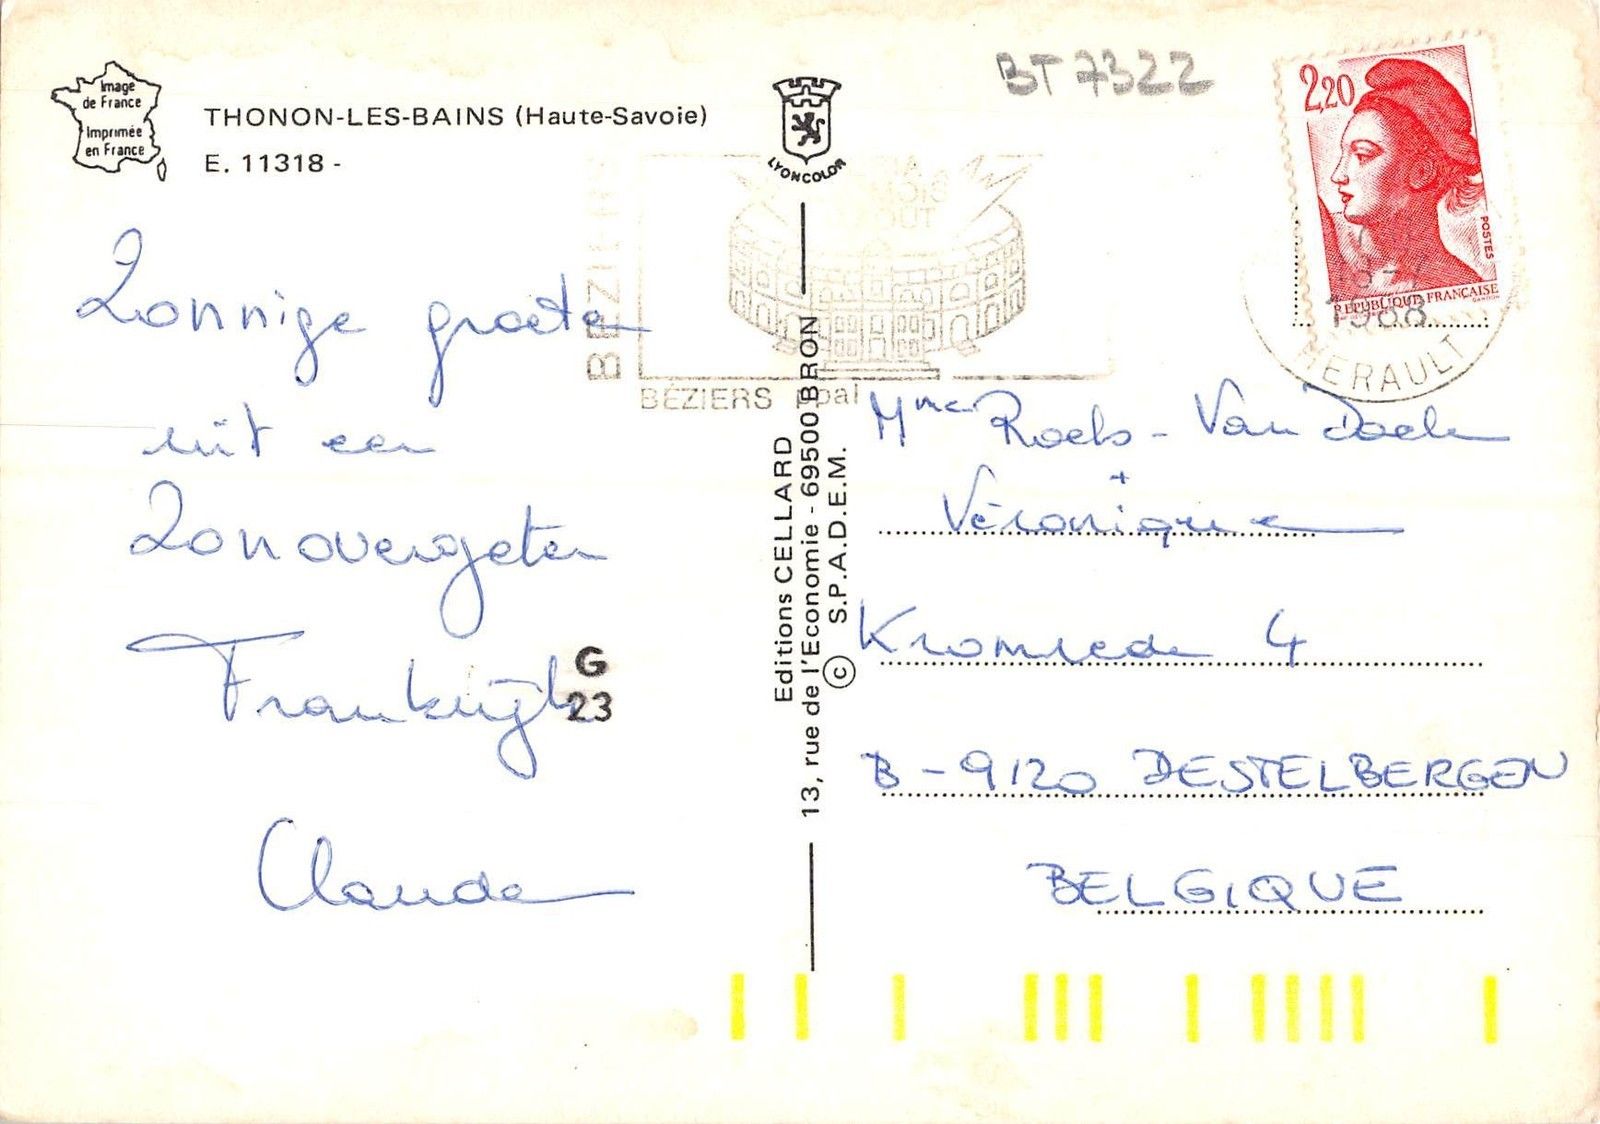 Image
de France
Imprimée
en France
THONON-LES-BAINS (Haute-Savoie)
E. 11318 -
LYONCOLOR
BT 7322
2,20
POSTES
REPUBLIQUE FRANÇAISE
1988
HERAULT
BEZIERS
BÉZIERS ppal
Zonnige groeten
uit een
Zonovergoten
Frankrijk
G
23
Claude
Editions CELLARD
13, rue de l'Economie - 69500 BRON
© S.P.A.D.E.M.
Mme Roels - Van Daele
Véronique
Kromrede 4
B - 9120 DESTELBERGEN
BELGIQUE